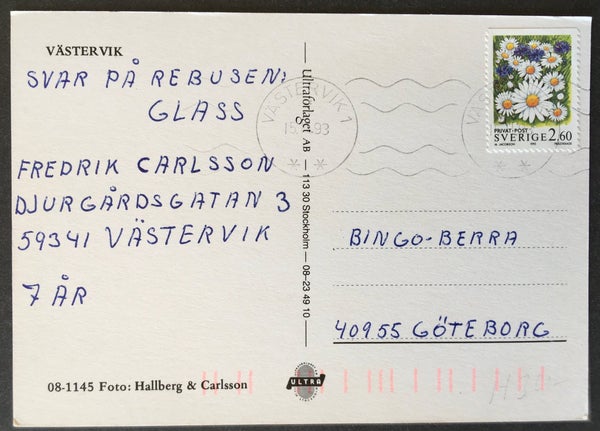 VÄSTERVIK
SVAR PÅ REBUSEN:
GLASS
FREDRIK CARLSSON
DJURGÅRDSGATAN 3
59341 VÄSTERVIK
7 ÅR
08-1145 Foto: Hallberg & Carlsson
Ultraförlaget AB — 113 30 Stockholm — 08-23 49 10
ULTRA
VÄSTERVIK 1
93
PRIVAT-POST
SVERIGE 2,60
BINGO-BERRA
40955 GÖTEBORG